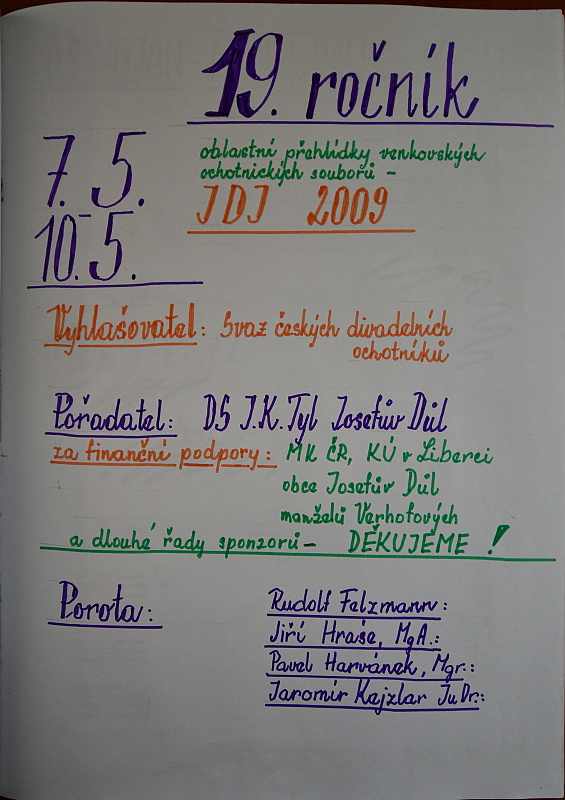 19. ročník
7. 5. –
10. 5.
oblastní přehlídky venkovských
ochotnických souborů –
JDJ 2009
Vyhlašovatel: Svaz českých divadelních
ochotníků
Pořadatel: DS J.K.Tyl Josefův Důl
za finanční podpory: MK ČR, KÚ v Liberci
obce Josefův Důl
manželů Verhofových
a dlouhé řady sponzorů – DĚKUJEME !
Porota:
Rudolf Felzmann:
Jiří Hraše, MgA.:
Pavel Harvánek, Mgr.:
Jaromír Kejzlar JuDr.: